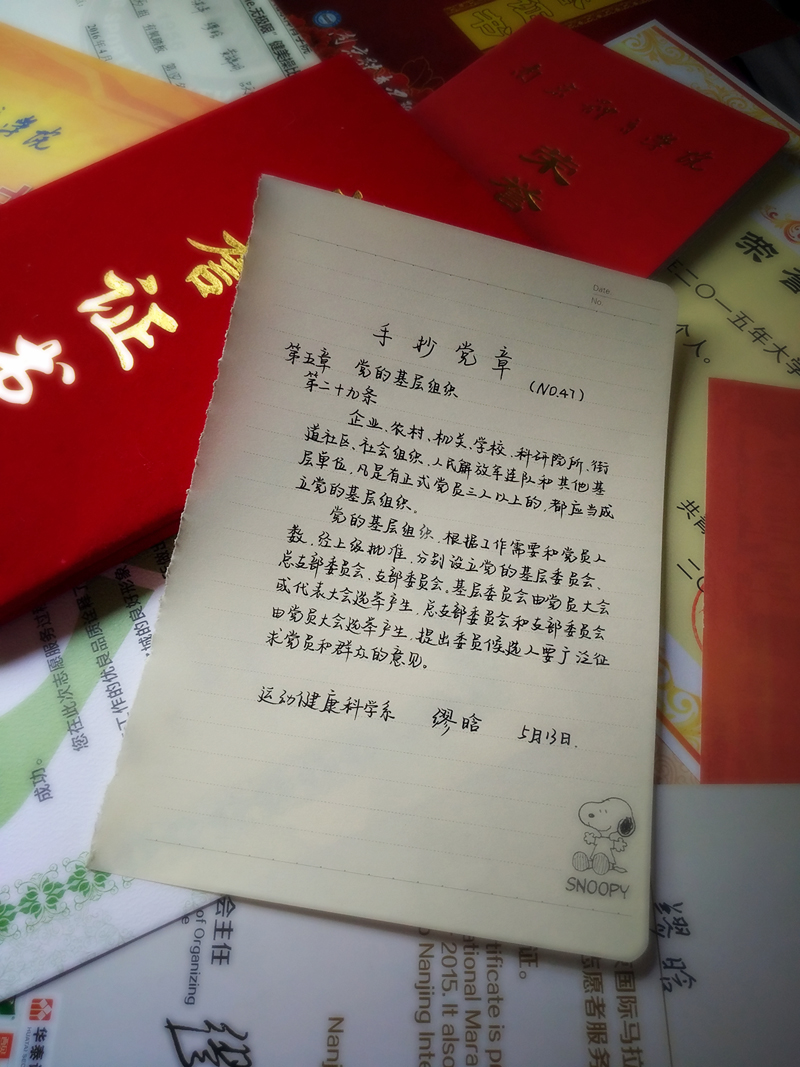 Date.
No.
手抄党章
(NO.47)
第五章 党的基层组织
第二十九条
企业、农村、机关、学校、科研院所、街
道社区、社会组织、人民解放军连队和其他基
层单位，凡是有正式党员三人以上的，都应当成
立党的基层组织。
党的基层组织，根据工作需要和党员人
数，经上级批准，分别设立党的基层委员会、
总支部委员会、支部委员会。基层委员会由党员大会
或代表大会选举产生，总支部委员会和支部委员会
由党员大会选举产生，提出委员候选人要广泛征
求党员和群众的意见。
运动健康科学系 缪晗 5月13日.
SNOOPY
证书
荣誉
学院
荣誉
二〇一五年大学
个人。
您在此次志愿服务过
工作的优良品质
城的良好形象
成功。
会主任
of Organizing
缪晗
国际马拉
志愿者服务
证。
ertificate is
ational Mara
2015. It also
Nanjing Inte
Nanj
华泰